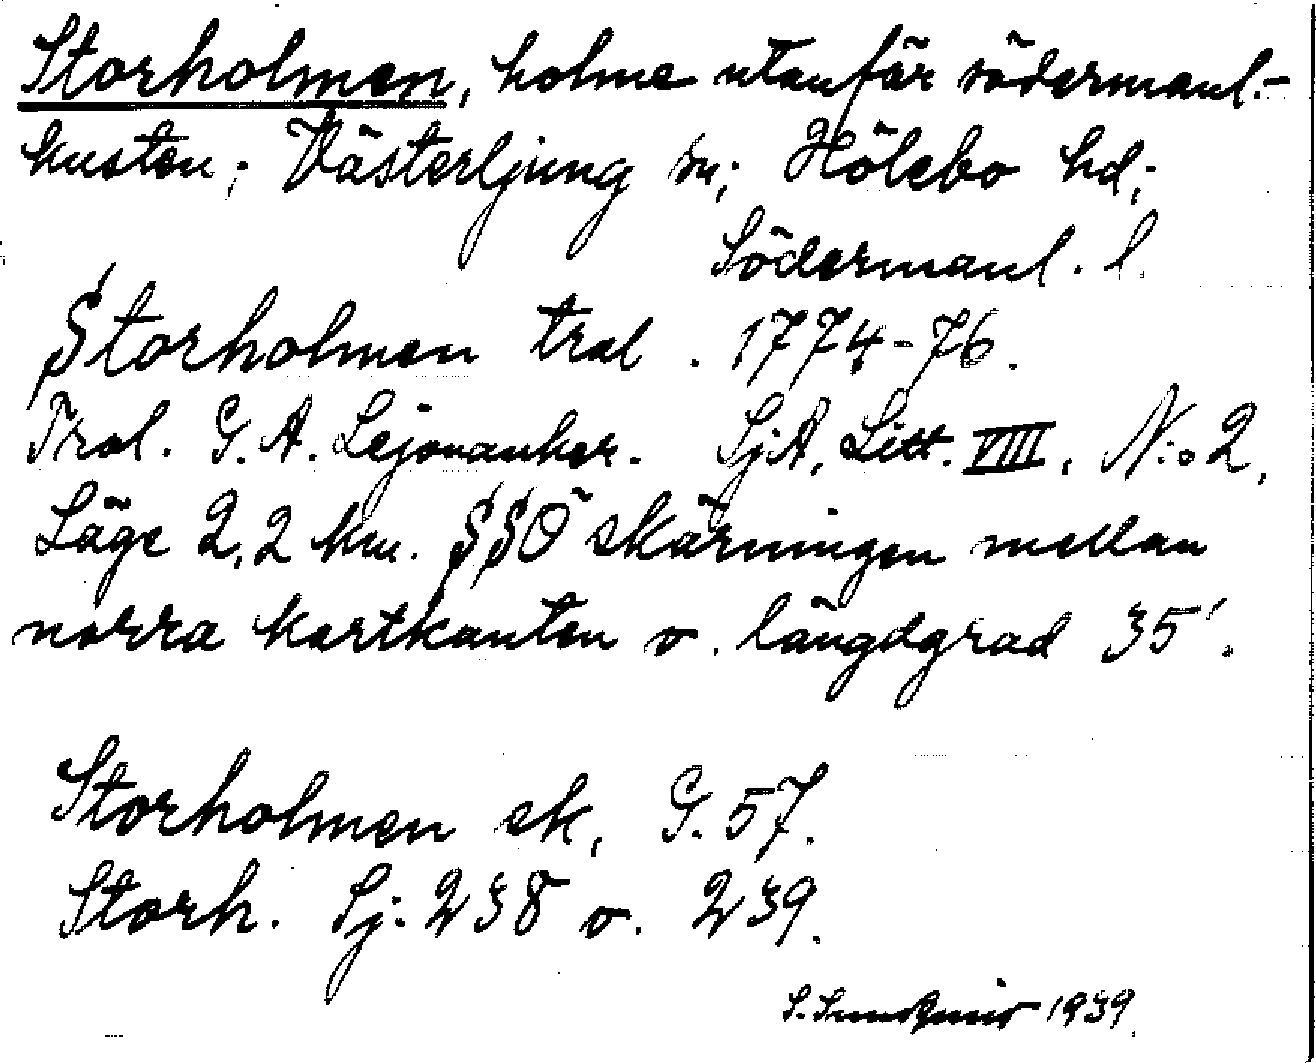 Storholmen, holme utanför södermanl.-
kusten; Västerljung sn; Hölebo hd;
Södermanl. l.
Storholmen trol. 1774-76.
Trol. G. A. Lejonanker. SjA, Litt. VIII, N:o 2,
Läge 2,2 km. SSÖ skärningen mellan
norra kartkanten o. längdgrad 35'.
Storholmen ek, G. 57.
Storh. Sj. 238 o. 239.
S. 1939.